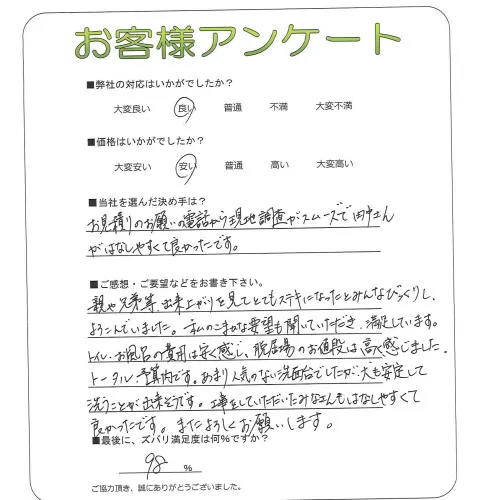 お客様アンケート
■弊社の対応はいかがでしたか？
大変良い 良い 普通 不満 大変不満
■価格はいかがでしたか？
大変安い 安い 普通 高い 大変高い
■当社を選んだ決め手は？
お見積りのお願いの電話から現地調査がスムーズで田中さん
がはなしやすくて良かったです。
■ご感想・ご要望などをお書き下さい。
親や兄弟等、出来上がりを見てとてもステキになったとみんなびっくりし、
よろこんでいました。私のこまかな要望も聞いていただき、満足しています。
トイレ、お風呂の費用は安く感じ、脱居場のお値段は高く感じました。
トータル、予算内です。あまり人気のない洗面台でしたが、犬も安定して
洗うことが出来そうです。工事をしていただいたみなさんもはなしやすくて
良かったです。またよろしくお願いします。
■最後に、ズバリ満足度は何%ですか？
98 %
ご協力頂き、誠にありがとうございました。